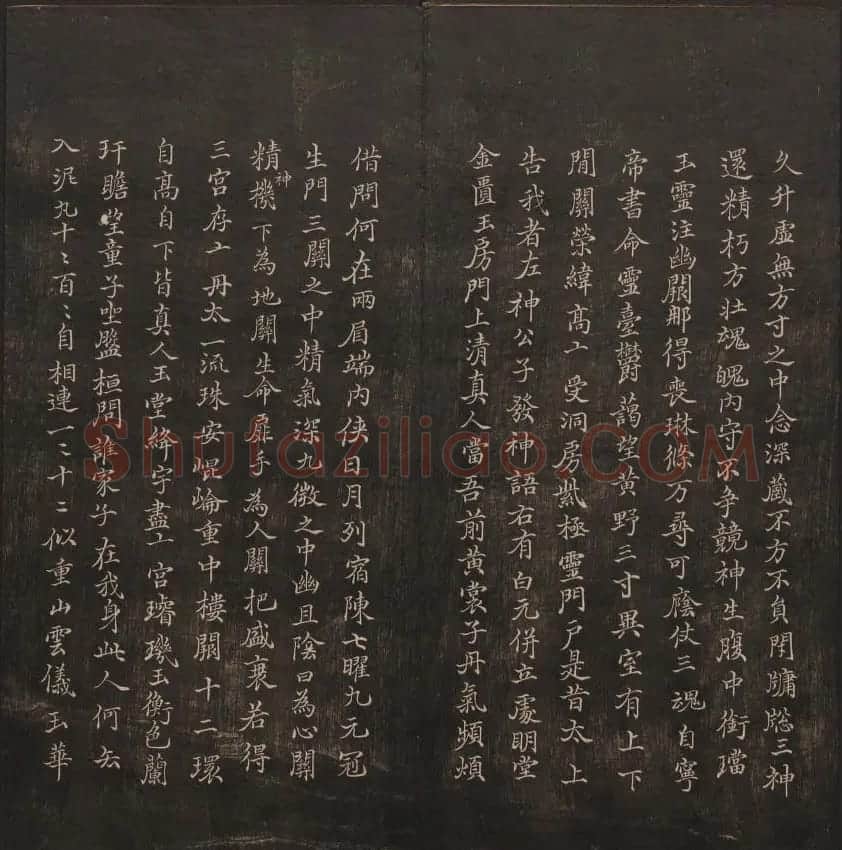 久升虛無方寸之中念深藏不方不負閇牖牕三神
還精朽方壮魂魄内守不争競神生腹中銜璫
玉靈注幽闕那得喪琳條万尋可廕仗三魂自寧
帝書命靈臺欝藹望黄野三寸異室有上下
閒關榮緯髙丄受洞房紫極靈門戸是昔太上
告我者左神公子發神語右有白元併立處明堂
金匱玉房門上清真人當吾前黄裳子丹氣頻煩
借問何在兩眉端内侠日月列宿陳七曜九元冠
生門三關之中精氣深九微之中幽且陰曰為心關
精神機下為地關生命扉手為人關把盛衰若得
三宮存丄丹太一流珠安崐崘重中樓閣十二環
自髙自下皆真人玉堂絳宇盡丄宮璿璣玉衡色蘭
玕瞻望童子坐盤桓問誰家子在我身此人何去
入泥丸千〻百〻自相連一〻十二似重山雲儀玉華
Shufaziliao.COM